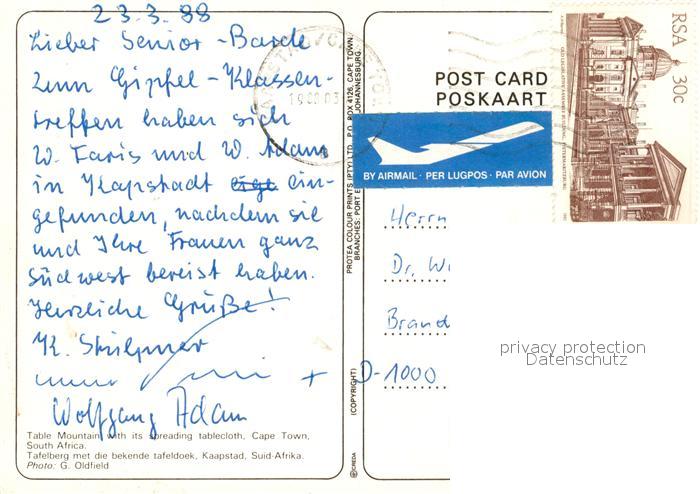 23.3.88
Lieber Senior-Barde
Zum Gipfel-Klassen-
treffen haben sich
W. Faris und W. Adam
in Kapstadt ein-
gefunden, nachdem sie
und Ihre Frauen ganz
Südwest bereist haben.
Herzliche Grüße!
K.
+
Wolfgang Adam
Table Mountain with its spreading tablecloth, Cape Town,
South Africa.
Tafelberg met die bekende tafeldoek, Kaapstad, Suid-Afrika.
Photo: G. Oldfield
PROTEA COLOUR PRINTS (PTY) LTD. P.O. BOX 4126, CAPE TOWN.
BRANCHES: PORT E JOHANNESBURG.
(COPYRIGHT)
CREDA
POST CARD
POSKAART
BY AIRMAIL · PER LUGPOS · PAR AVION
RSA 30c
Herrn
Dr. Wi
Brand
D-1000
privacy protection
Datenschutz